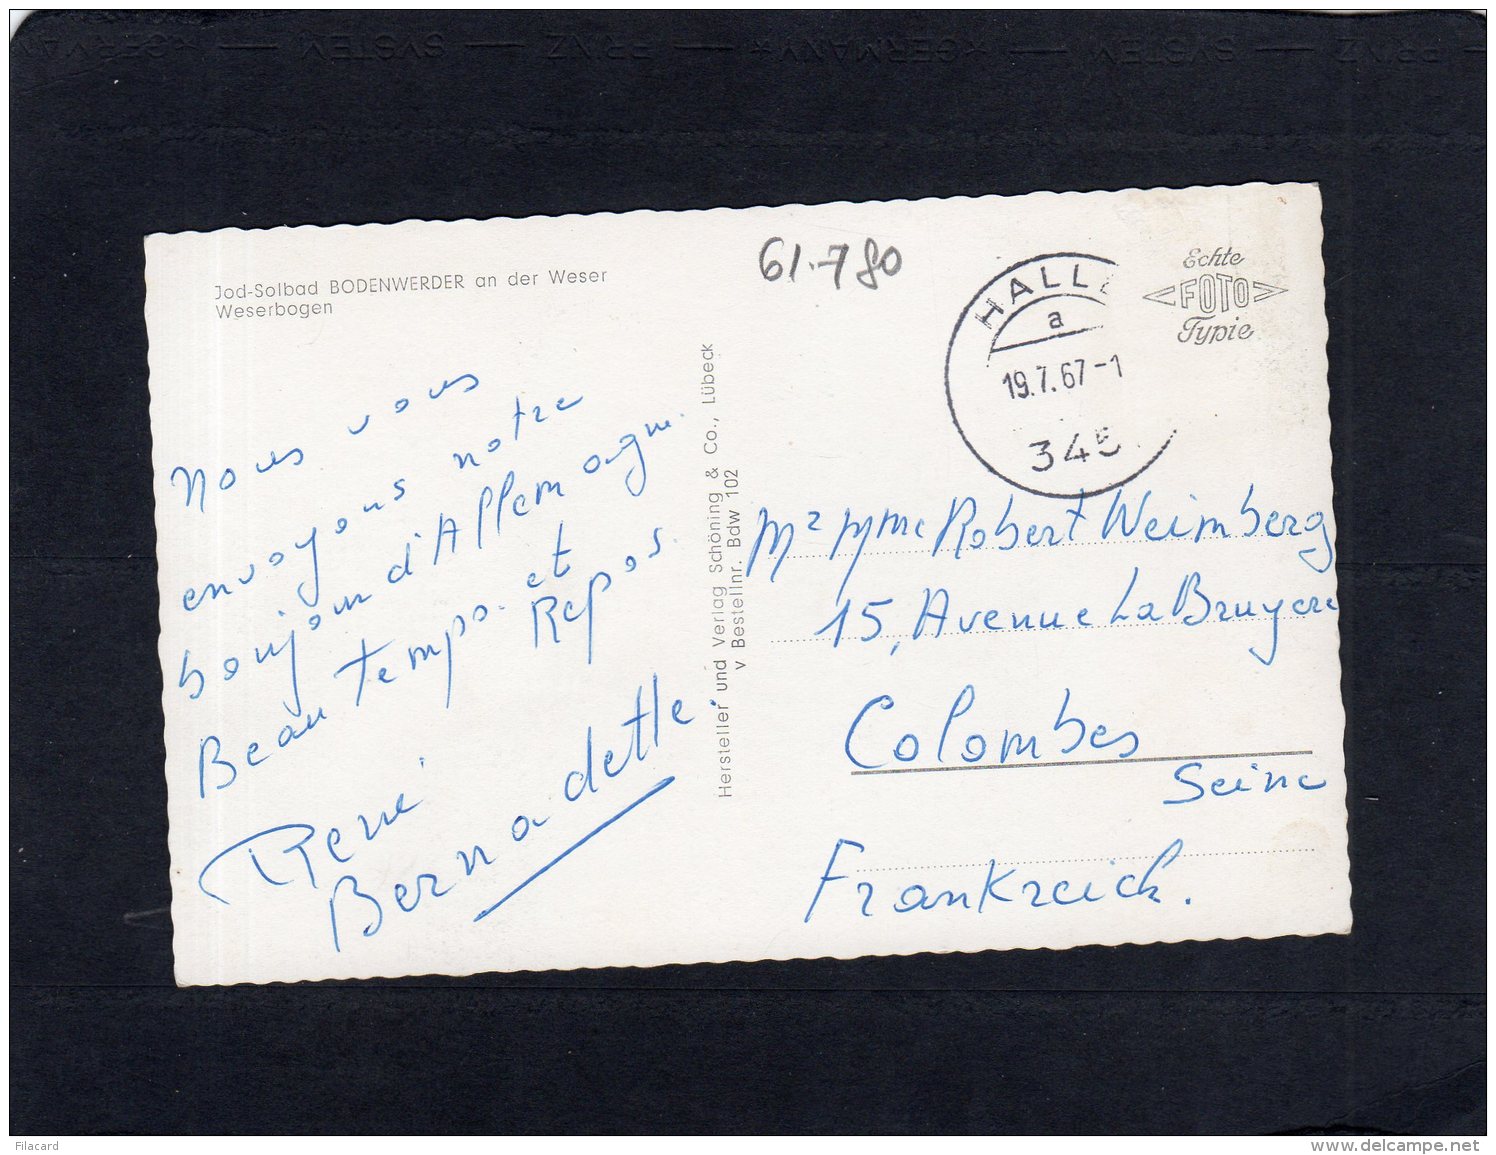 Jod-Solbad BODENWERDER an der Weser
Weserbogen
61.780
HALLE
a
19.7.67-1
345
Echte
FOTO
Typie
Nous vous
envoyons notre
bonjour d'Allemagne.
Beau temps et
Repos.
René
Bernadette.
Hersteller und Verlag Schöning & Co., Lübeck
v Bestellnr. Bdw 102
Mr Mme Robert Weimberg
15, Avenue La Bruyere
Colombes
Seine
Frankreich.
Filacard
www.delcampe.net